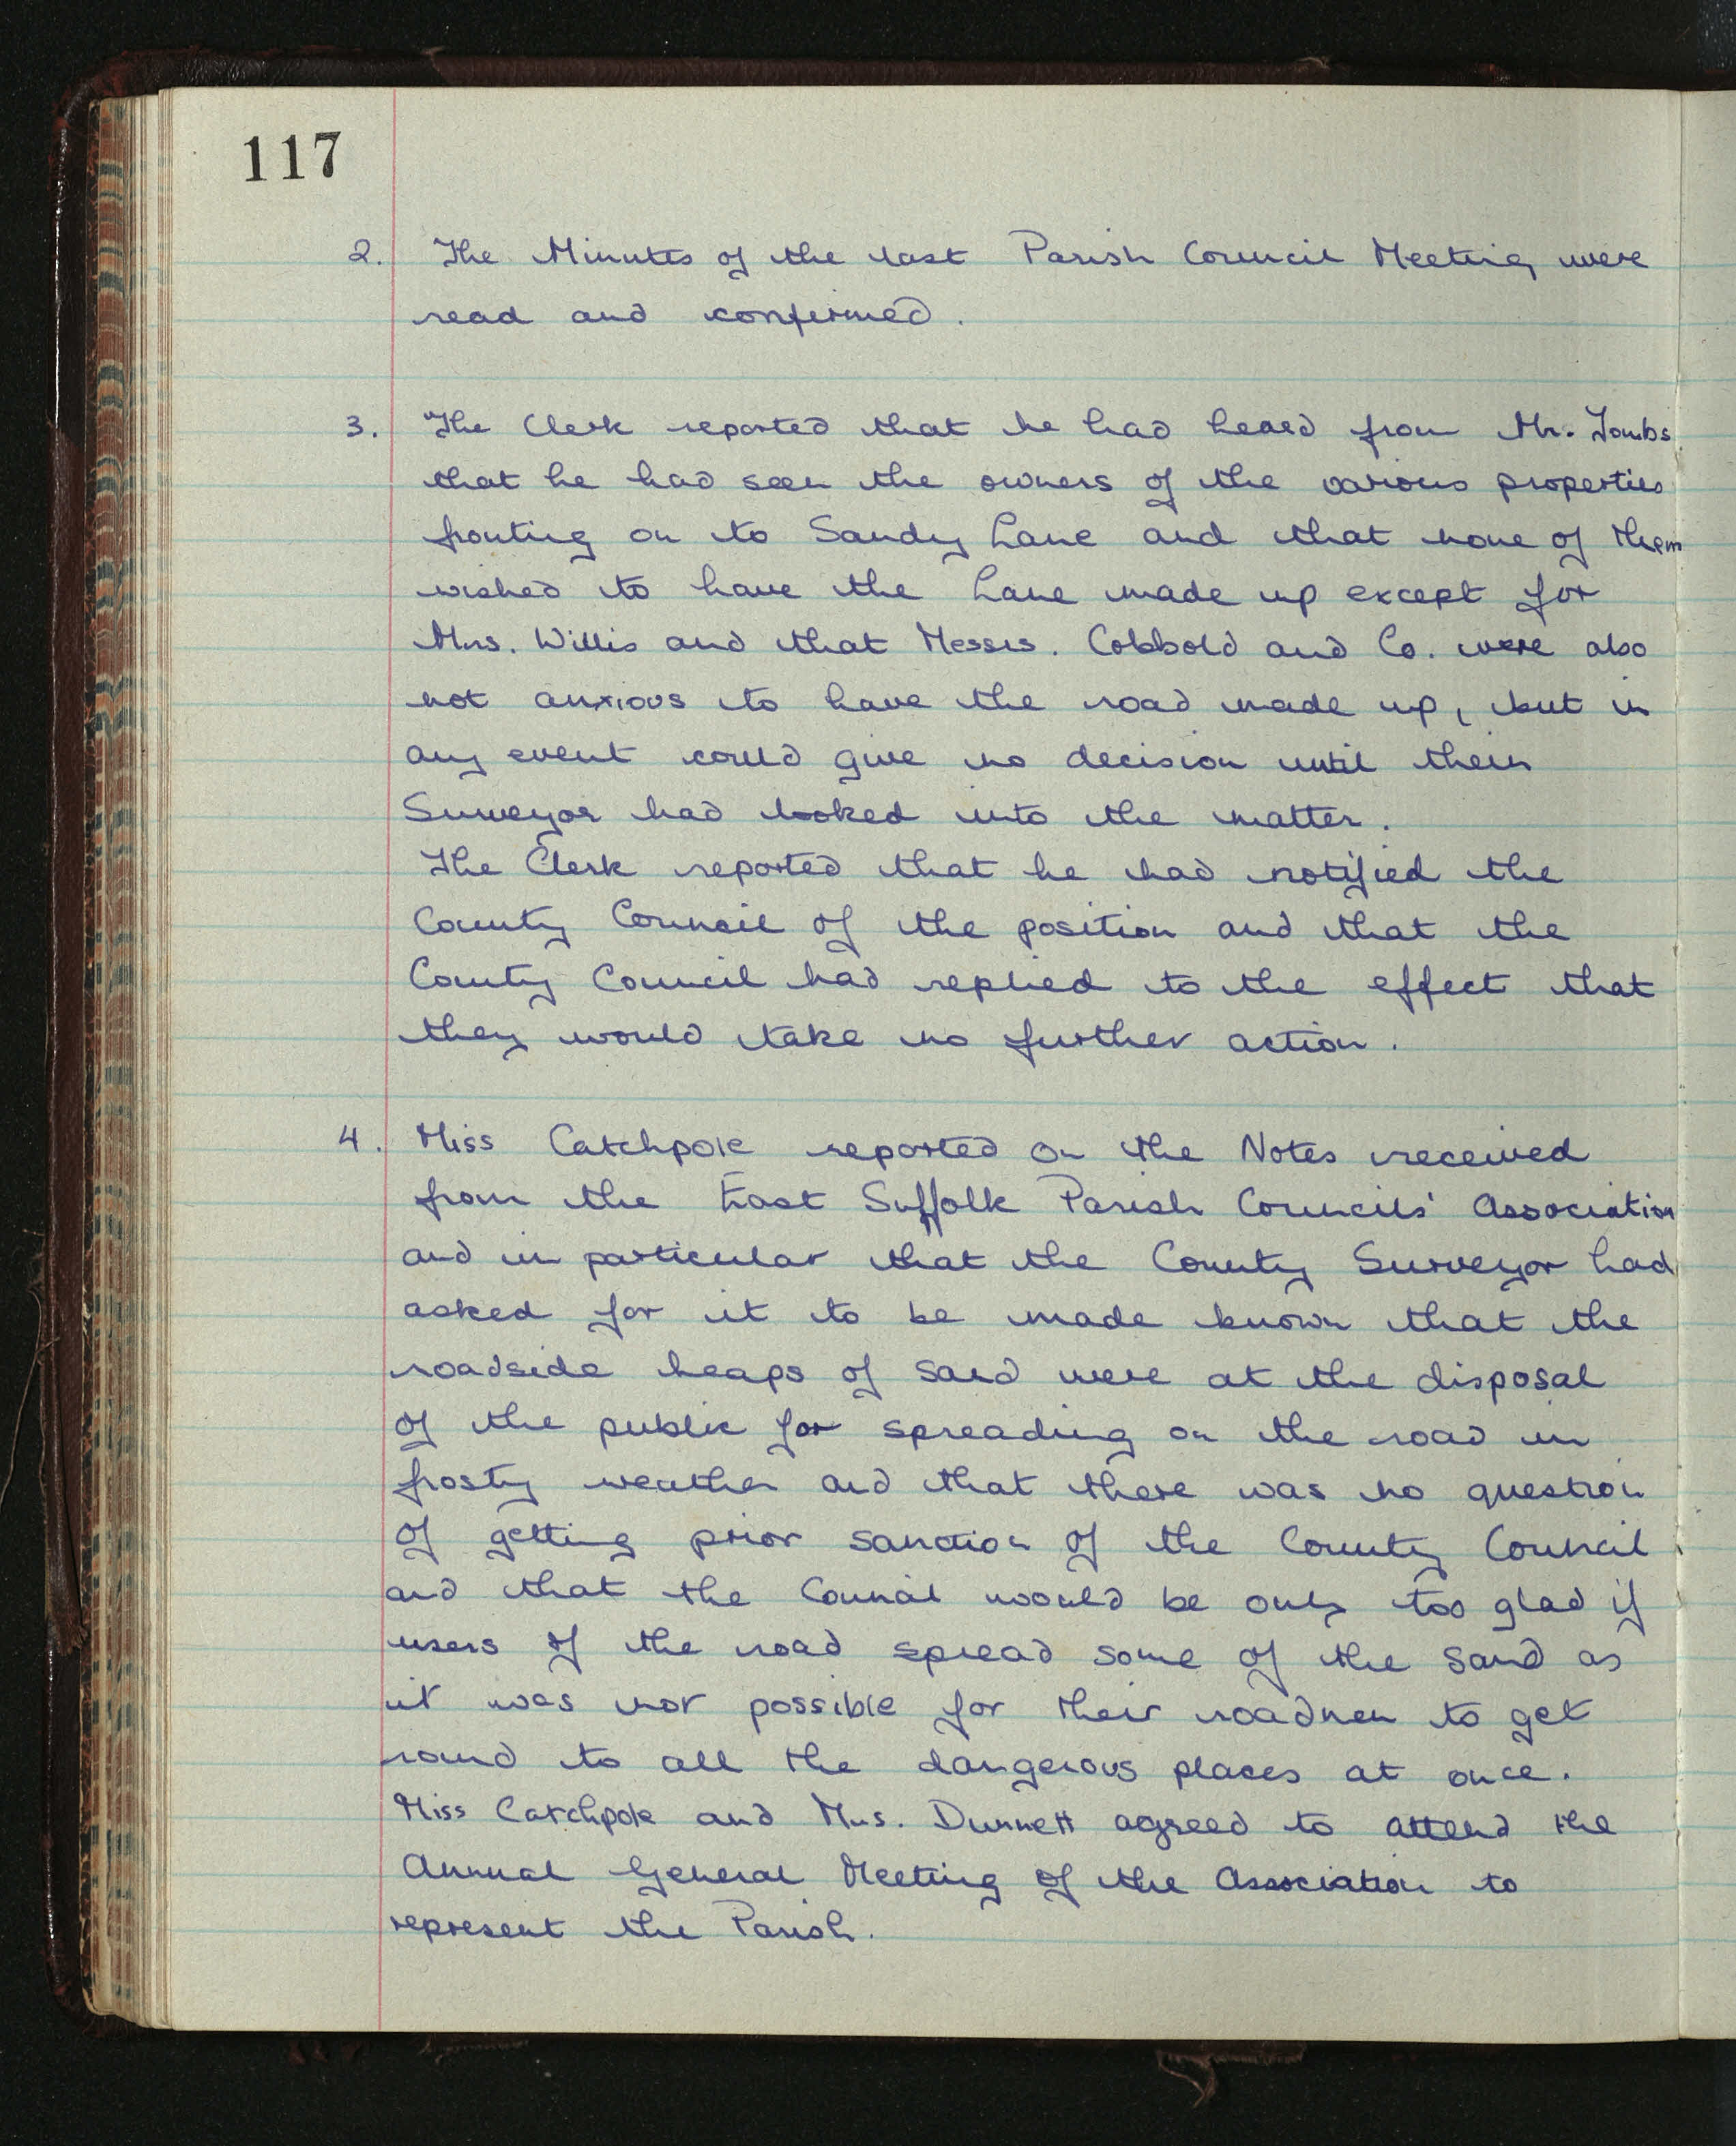 117
2. The Minutes of the last Parish Council Meeting were
read and confirmed.
3. The Clerk reported that he had heard from Mr. Tombs
that he had seen the owners of the various properties
fronting on to Sandy Lane and that none of them
wished to have the Lane made up except for
Mrs. Willis and that Messrs. Cobbold and Co. were also
not anxious to have the road made up, but in
any event could give no decision until their
Surveyor had looked into the matter.
The Clerk reported that he had notified the
County Council of the position and that the
County Council had replied to the effect that
they would take no further action.
4. Miss Catchpole reported on the Notes received
from the East Suffolk Parish Councils' Association
and in particular that the County Surveyor had
asked for it to be made known that the
roadside heaps of sand were at the disposal
of the public for spreading on the road in
frosty weather and that there was no question
of getting prior sanction of the County Council
and that the Council would be only too glad if
users of the road spread some of the sand as
it was not possible for their roadmen to get
round to all the dangerous places at once.
Miss Catchpole and Mrs. Dunnett agreed to attend the
Annual General Meeting of the Association to
represent the Parish.